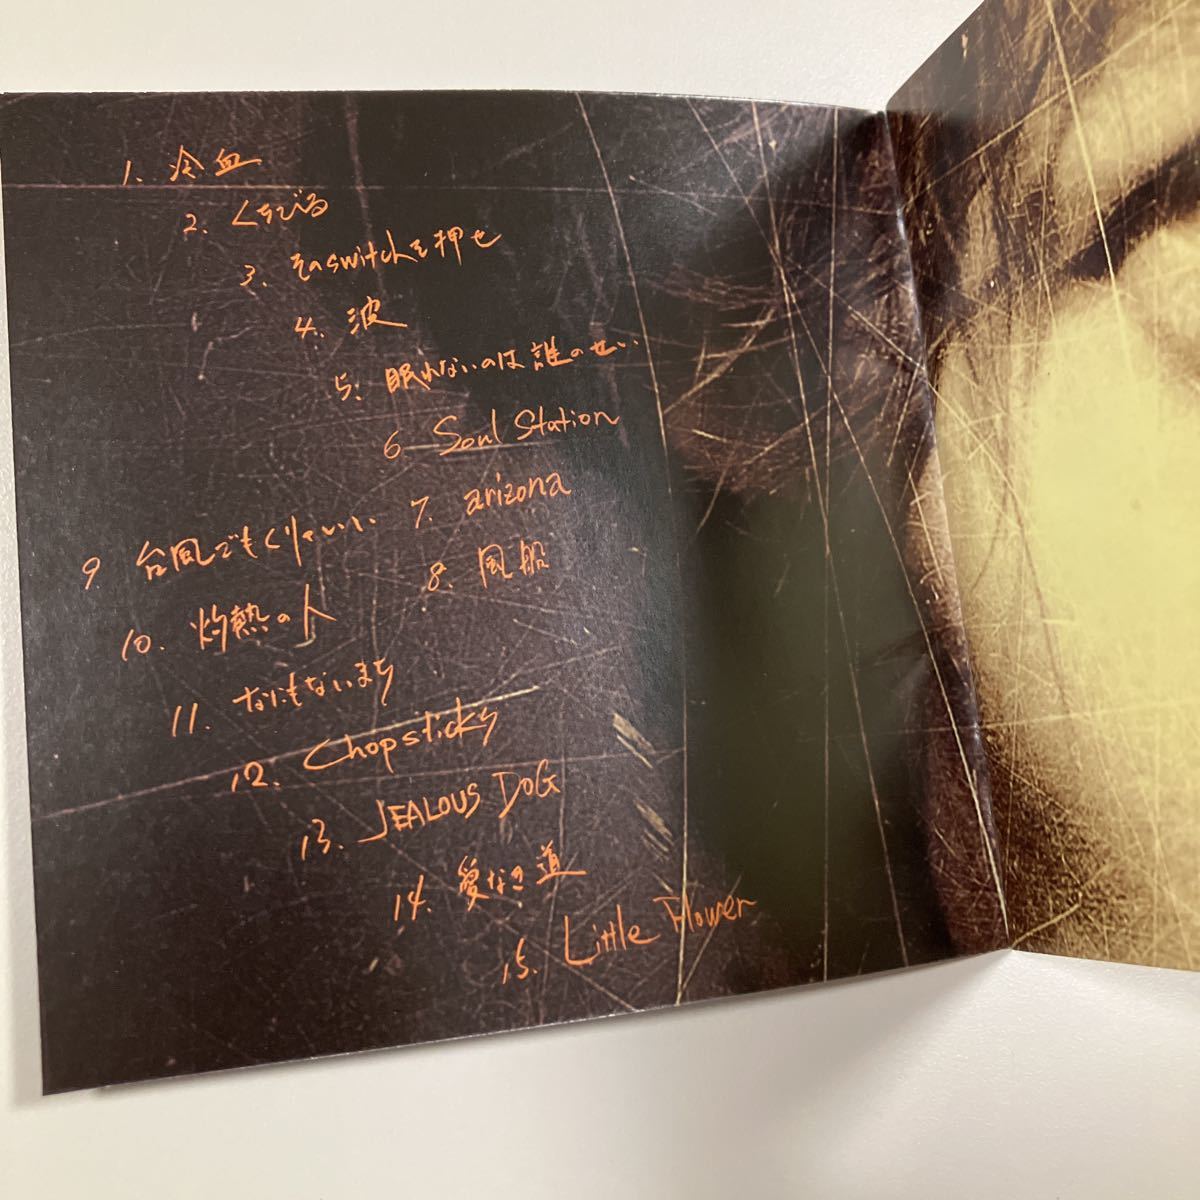 1. 冷血
2. くちびる
3. そのswitchを押せ
4. 波
5. 眠れないのは誰のせい
6 Soul Station
7. arizona
8. 風船
9 台風でもくりゃいい
10. 灼熱の人
11. なにもないまち
12. Chopsticks
13. JEALOUS DOG
14. 愛なき道
15. Little Flower